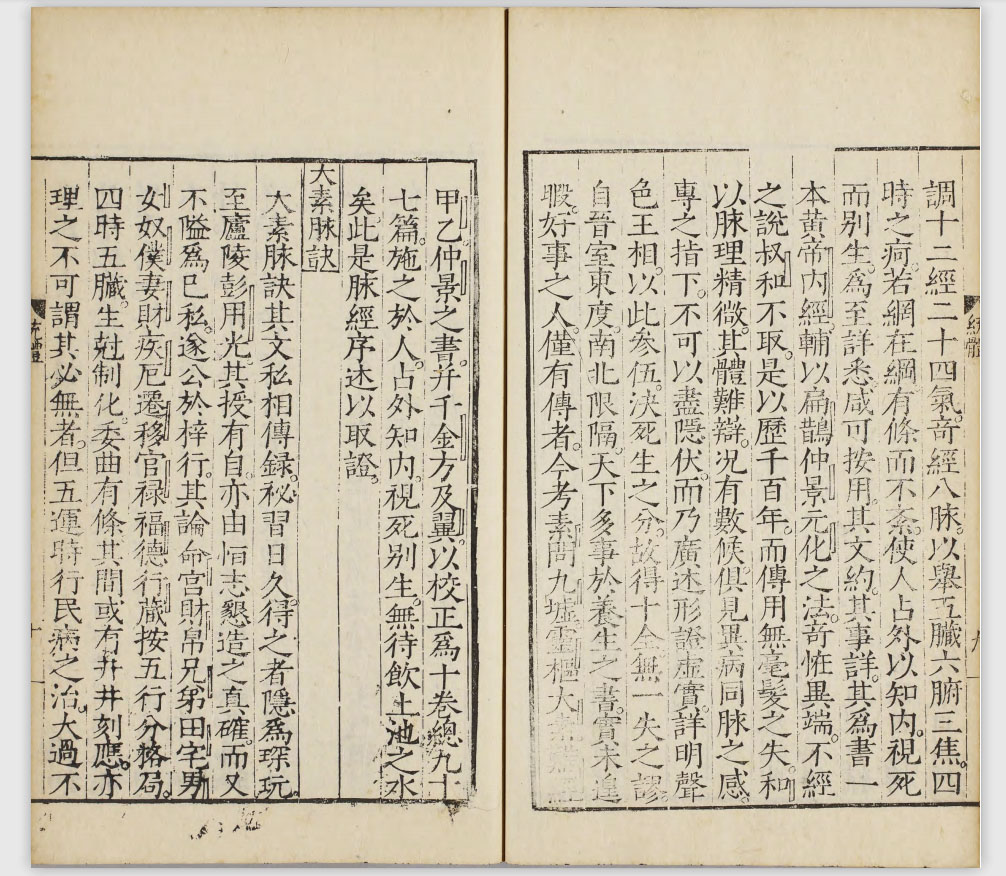 調十二經二十四氣奇經八脉以舉五臟六腑三焦四
時之疴若網在綱有條而不紊使人占外以知內視死
而别生爲至詳悉咸可按用其文約其事詳其爲書一
本黄帝內經輔以扁鵲仲景元化之法奇恠異端不經
之說叔和不取是以歷千百年而傳用無毫髮之失和
以脉理精微其體難辯况有數候俱見異病同脉之感
專之指下不可以盡隱伏而乃廣述形證虚實詳明聲
色王相以此参伍决死生之分故得十全無一失之謬
自晉室東度南北限隔天下多事於養生之書實未遑
暇好事之人僅有傳者今考素問九墟靈樞太
經體
九
甲乙仲景之書并千金方及翼以校正爲十卷總九十
七篇施之於人占外知內視死别生無待飲上池之水
矣此是脉經序述以取證
大素脉訣
大素脉訣其文私相傳録祕習日久得之者隱爲琛玩
至廬陵彭用光其授有自亦由恒志懇造之真確而又
不隘爲已私遂公於梓行其論命宮財帛兄弟田宅男
女奴僕妻財疾厄遷移官禄福德行藏按五行分格局
四時五臟生尅制化委曲有條其間或有井井刻應亦
理之不可謂其必無者但五運時行民病之治大過不